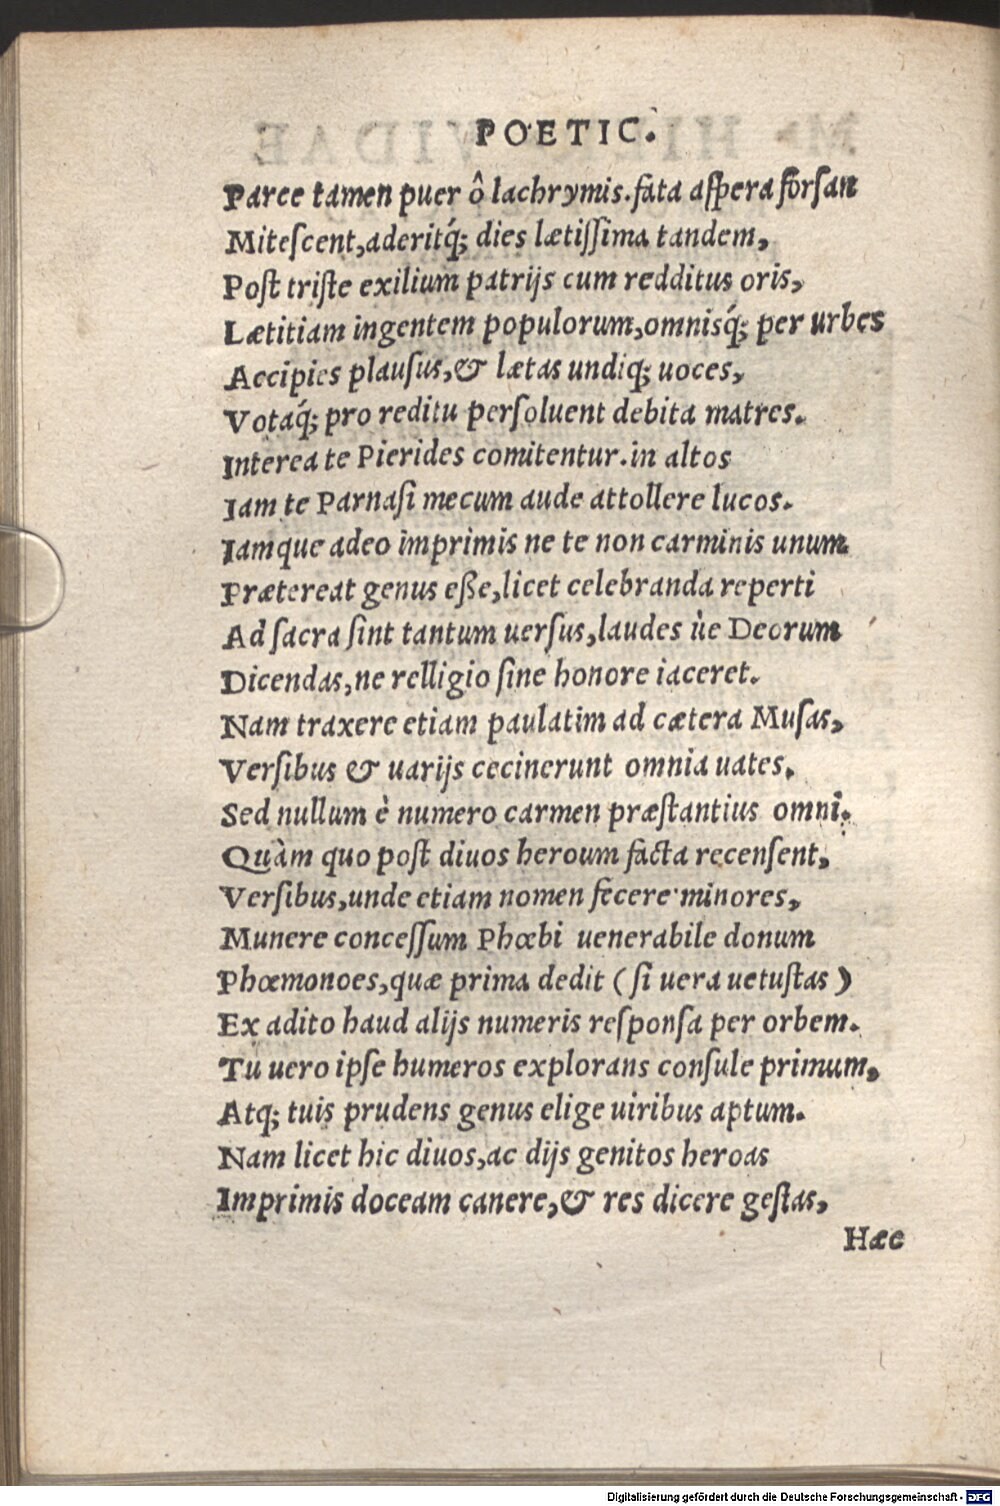 POETIC.
Parce tamen puer ô lachrymis. fata aſpera forſan
Miteſcent, aderitq́; dies lætiſſima tandem,
Poſt triſte exilium patrijs cum redditus oris,
Lætitiam ingentem populorum, omnisq́; per urbes
Accipies plauſus, & lætas undiq; uoces,
Votaq́; pro reditu perſoluent debita matres.
Interea te Pierides comitentur. in altos
Iam te Parnaſi mecum aude attollere lucos.
Iamque adeo imprimis ne te non carminis unum
Prætereat genus eſſe, licet celebranda reperti
Ad ſacra ſint tantum uerſus, laudes ùe Deorum
Dicendas, ne relligio ſine honore iaceret.
Nam traxere etiam paulatim ad cætera Muſas,
Verſibus & uarijs cecinerunt omnia uates.
Sed nullum è numero carmen præſtantius omni.
Quàm quo poſt diuos heroum facta recenſent,
Verſibus, unde etiam nomen fecere minores,
Munere conceſſum Phœbi uenerabile donum
Phœmonoes, quæ prima dedit (ſi uera uetuſtas)
Ex adito haud alijs numeris reſponſa per orbem.
Tu uero ipſe humeros explorans conſule primum,
Atq; tuis prudens genus elige uiribus aptum.
Nam licet hic diuos, ac dijs genitos heroas
Imprimis doceam canere, & res dicere geſtas,
Hæc
Digitalisierung gefördert durch die Deutsche Forschungsgemeinschaft - DFG